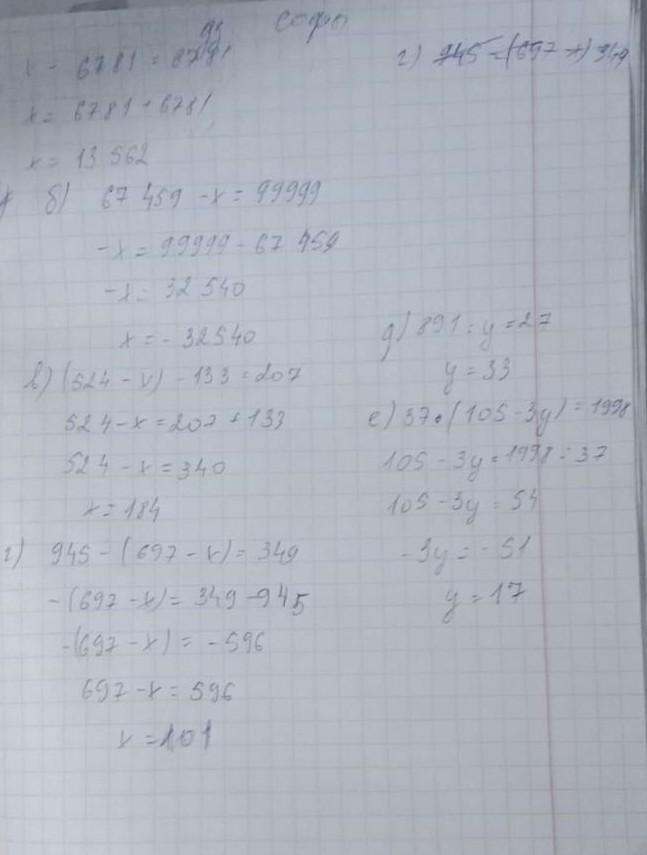 x - 6781 = 6781
x = 6781 + 6781
x = 13 562
б) 67 459 - x = 99999
-x = 99999 - 67 459
-x = 32 540
x = - 32540
в) (524 - x) - 133 = 207
524 - x = 207 + 133
524 - x = 340
x = 184
г) 945 - (697 - x) = 349
-(697 - x) = 349 - 945
-(697 - x) = - 596
697 - x = 596
x = 101
г) 945 - (697 - x) 349
д) 891 : y = 27
y = 33
е) 37 • (105 - 3y) = 1998
105 - 3y = 1998 : 37
105 - 3y = 54
- 3y = - 51
y = 17